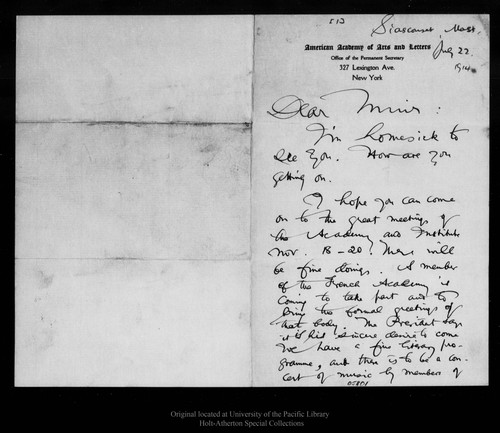 513
Siasconset, Mass.
July 22.
1914
American Academy of Arts and Letters
Office of the Permanent Secretary
327 Lexington Ave.
New York
Dear Muir:
I'm homesick to
see you. How are you
getting on.
I hope you can come
on to the great meetings of
the Academy and Institute
Nov. 18-20. There will
be fine doings. A member
of the French Academy is
coming to take part and to
bring the formal greetings of
that body. The President says
it is his sincere desire to come
We have a fine literary pro-
gramme, and there is to be a con-
cert of music by members of
05801
Original located at University of the Pacific Library
Holt-Atherton Special Collections